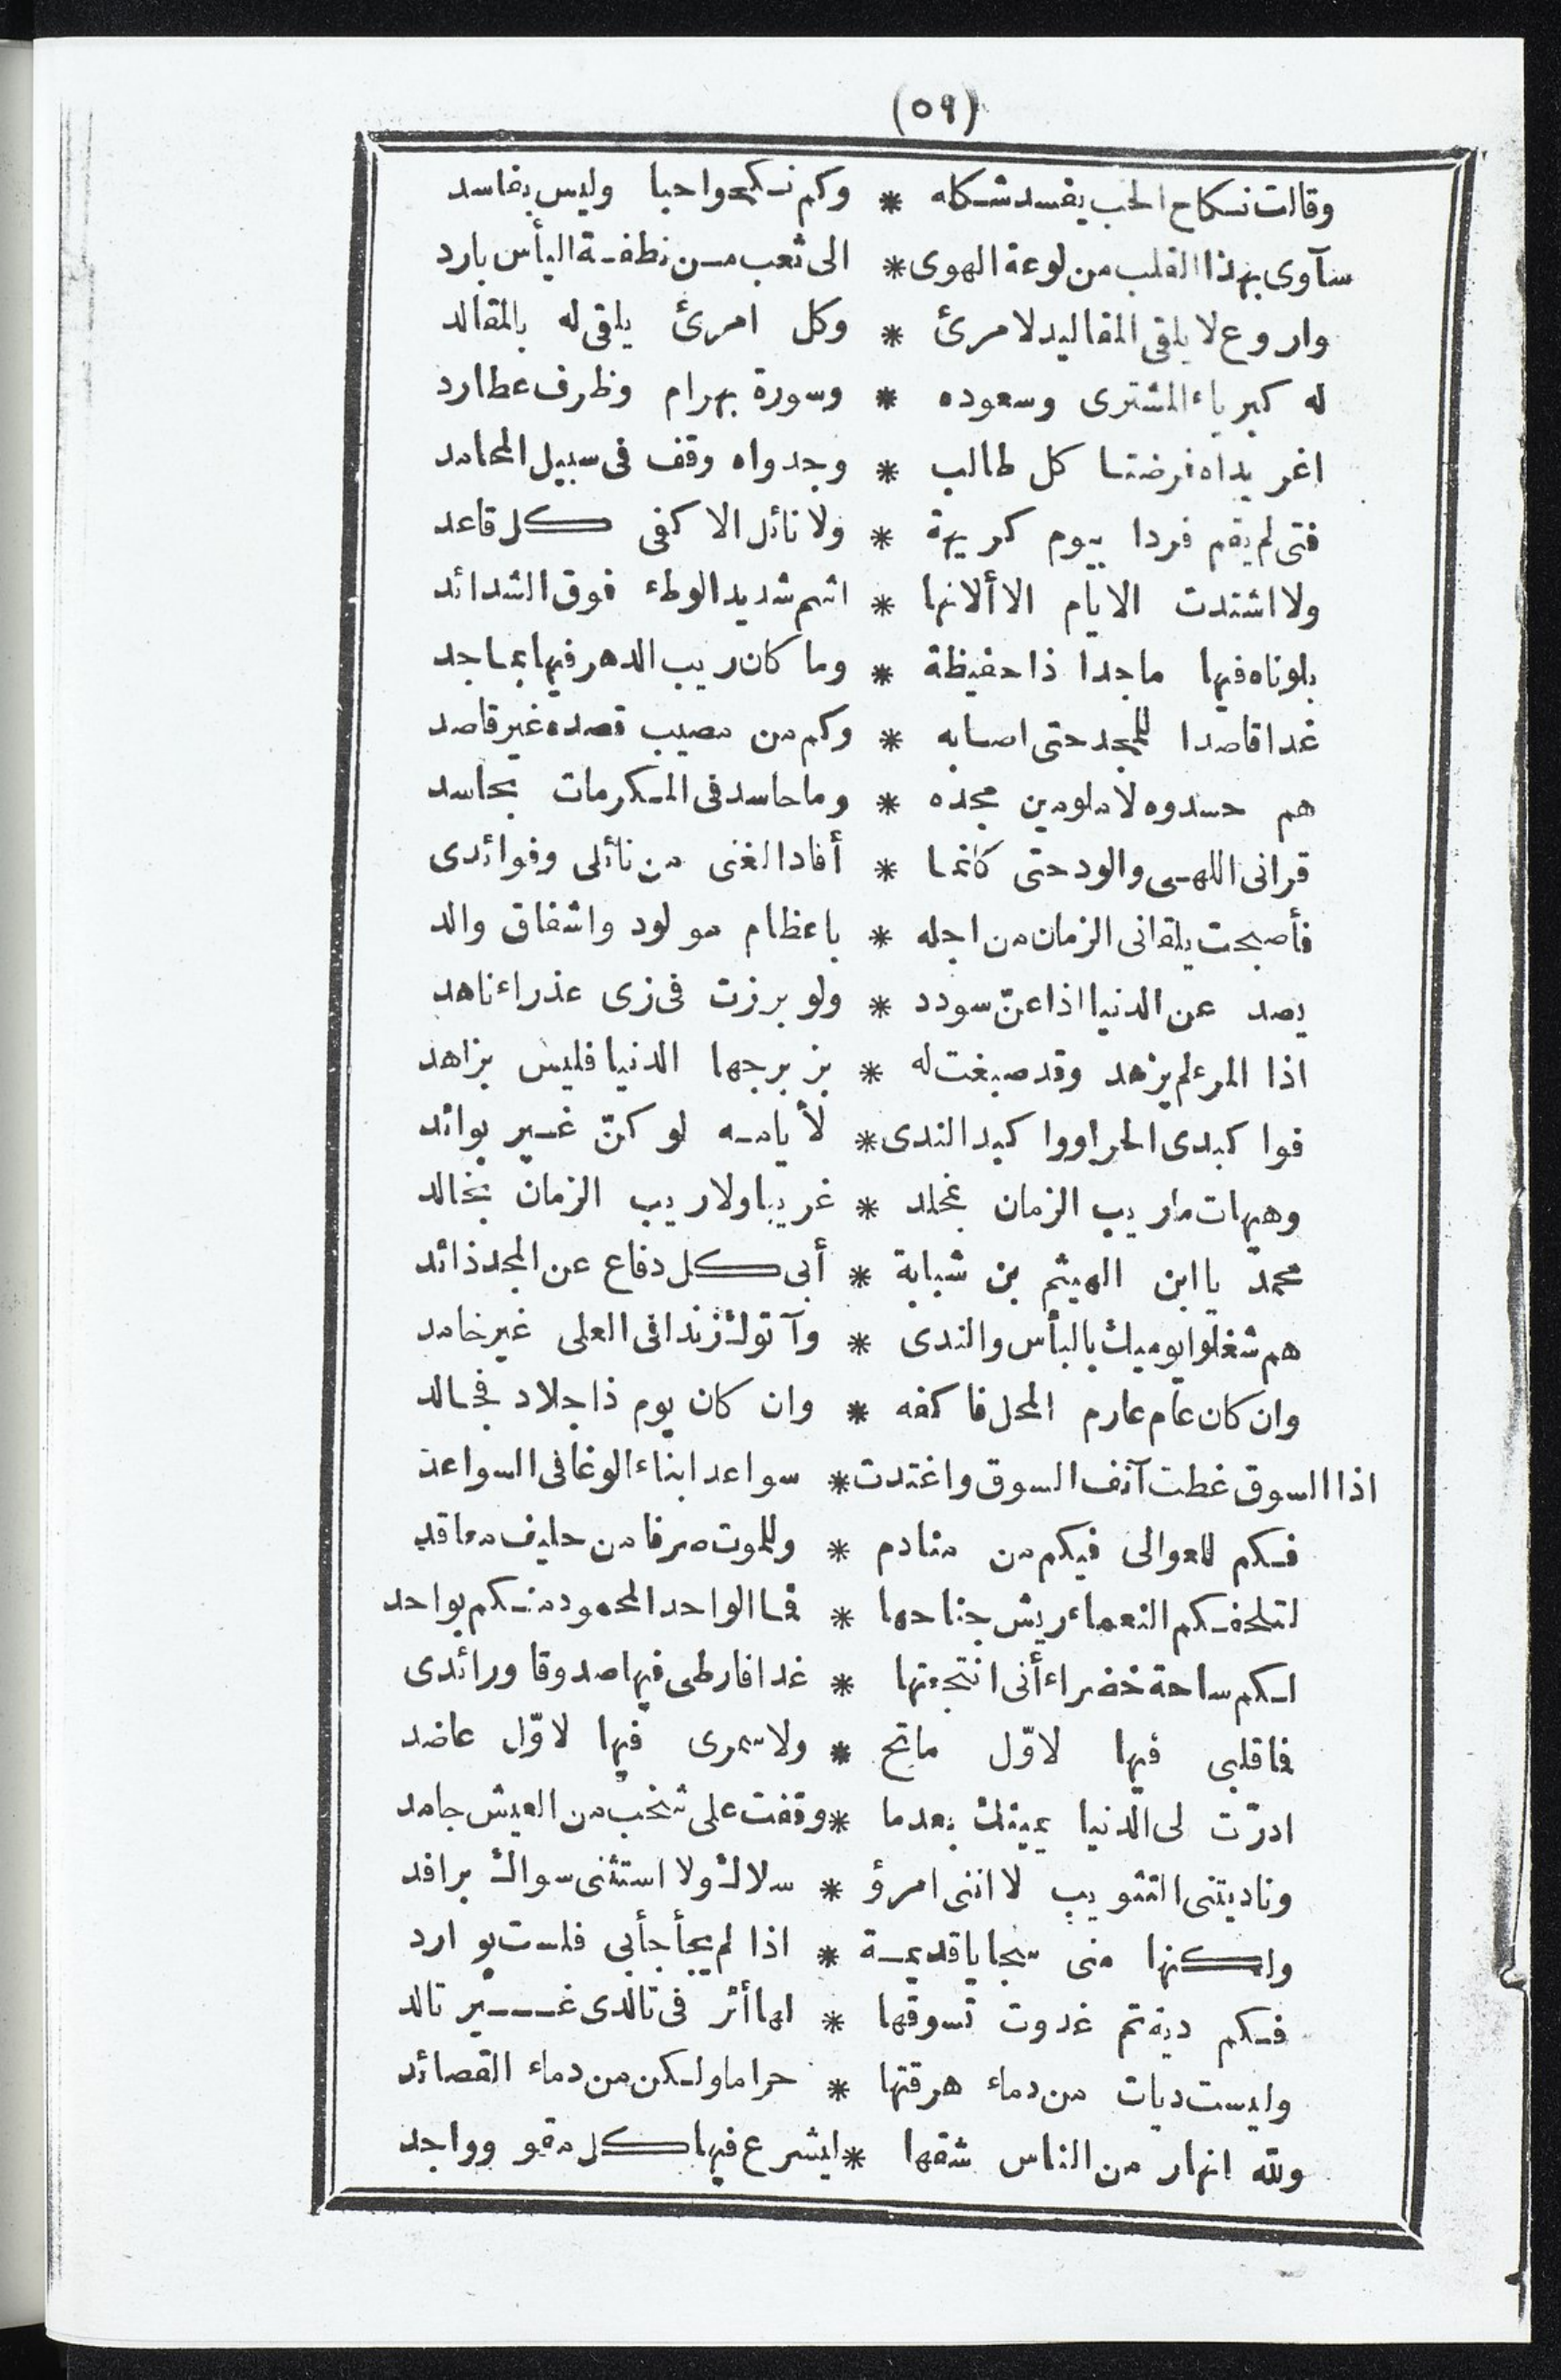 (٥٩)
وقالت نكاح الحب يفسد شكله * وكم نكحوا حبا وليس بفاسد
سآوى بهذا القلب من لوعة الهوى * الى ثعب من نطفة اليأس بارد
واروع لا يلقى المقاليد لامرئ * وكل امرئ يلقى له بالمقالد
له كبرياء المشترى وسعوده * وسورة بهرام وظرف عطارد
اغر يداه فرضتا كل طالب * وجدواه وقف فى سبيل المحامد
فتى لم يقم فردا بيوم كريهة * ولا نائل الا كفى كل قاعد
ولا اشتدت الايام الا ألانها * اشم شديد الوطء فوق الشدائد
بلوناه فيها ماجدا ذا حفيظة * وما كان ريب الدهر فيها بماجد
غدا قاصدا للمجد حتى اصابه * وكم من مصيب قصده غير قاصد
هم حسدوه لا ملومين مجده * وما حاسد فى المكرمات بحاسد
قرانى اللهى والود حتى كانما * أفاد الغنى من نائلى وفوائدى
فأصبحت يلقانى الزمان من اجله * باعظام مولود واشفاق والد
يصد عن الدنيا اذا عنّ سودد * ولو برزت فى زى عذراء ناهد
اذا المرء لم يزهد وقد صبغت له * بزبرجها الدنيا فليس بزاهد
فوا كبدى الحرا ووا كبد الندى * لأيامه لو كنّ غير بوائد
وهيهات ما ريب الزمان بمخلد * غريبا ولا ريب الزمان بخالد
محمد يا ابن الهيثم بن شبابة * أبى كل دفاع عن المجد ذائد
هم شغلوا يوميك بالبأس والندى * وآتوك زندا فى العلى غير خامد
وان كان عام عارم المحل فاكفه * وان كان يوم ذا جلاد فجالد
اذا السوق غطت آنف السوق واغتدت * سواعد ابناء الوغا فى السواعد
فكم للعوالى فيكم من منادم * وللموت صرفا من حليف معاقد
لتلحفكم النعماء ريش جناحها * فما الواحد المحمود منكم بواحد
لكم ساحة خضراء أنى انتجعتها * غدا فارطى فيها صدوقا ورائدى
فما قلبى فيها لاوّل ماتح * ولا سمرى فيها لاوّل عاضد
ادرّت لى الدنيا يمينك بعدما * وقفت على شخب من العيش جامد
وناديتنى التثويب لا اننى امرؤ * سلاك ولا استثنى سواك برافد
ولكنها منى سجايا قديمة * اذا لم يجأجأ بى فلست بوارد
فكم ديةتم غدوت تسوقها * لها أثر فى تالدى غير تالد
وليست ديات من دماء هرقتها * حراما ولكن من دماء القصائد
ولله انهار من الناس شقها * ليشرع فيها كل مقو وواجد